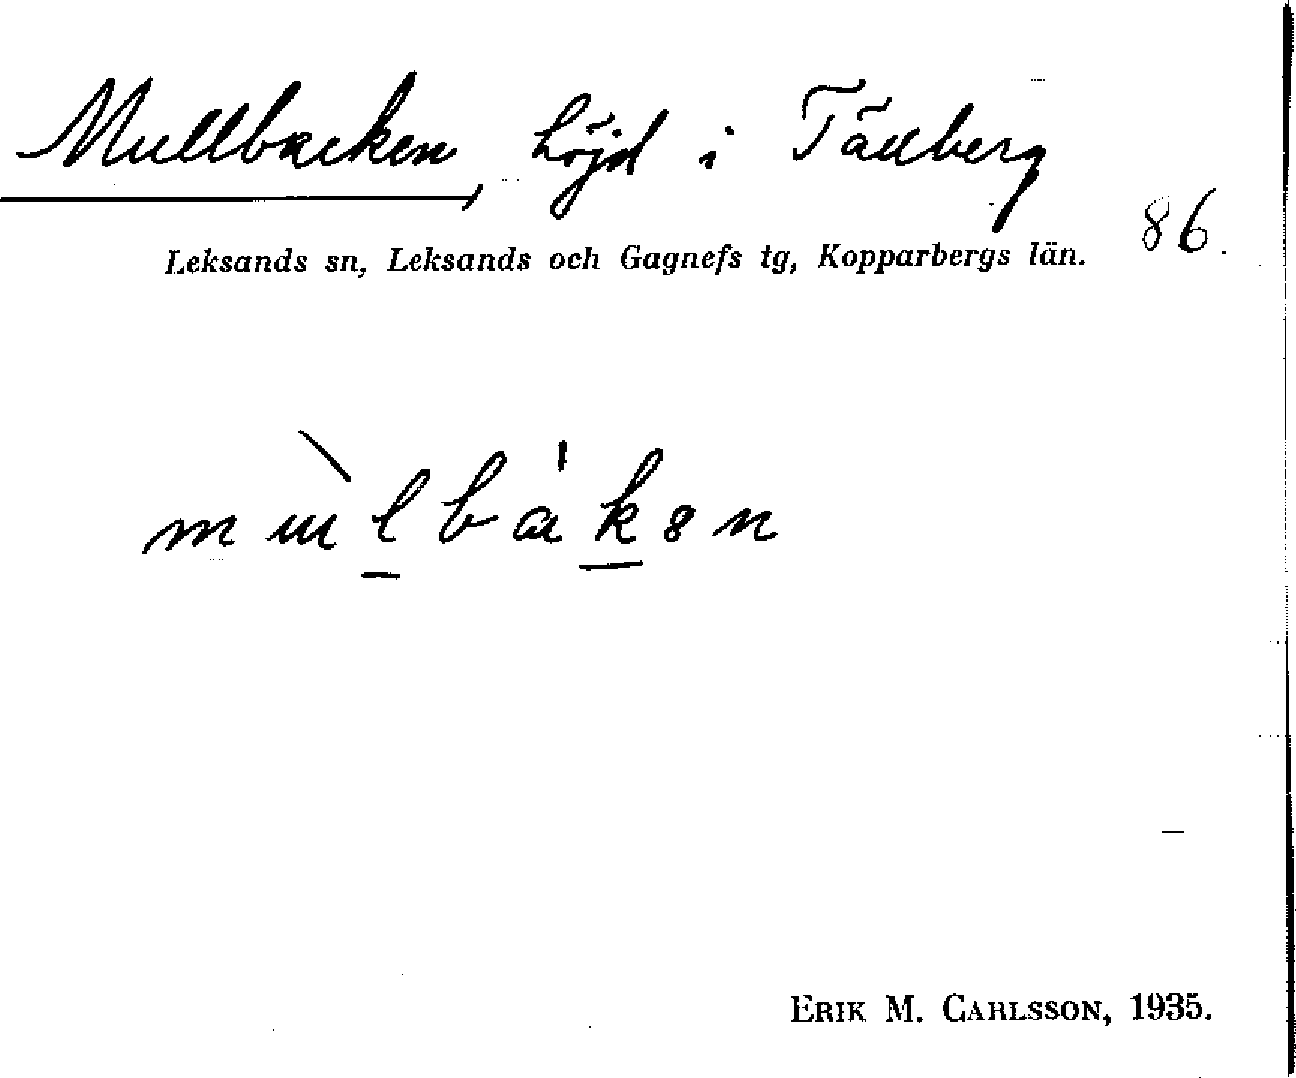 Mullbacken, höjd i Tällberg
86.
Leksands sn, Leksands och Gagnefs tg, Kopparbergs län.
ERIK M. CARLSSON, 1935.